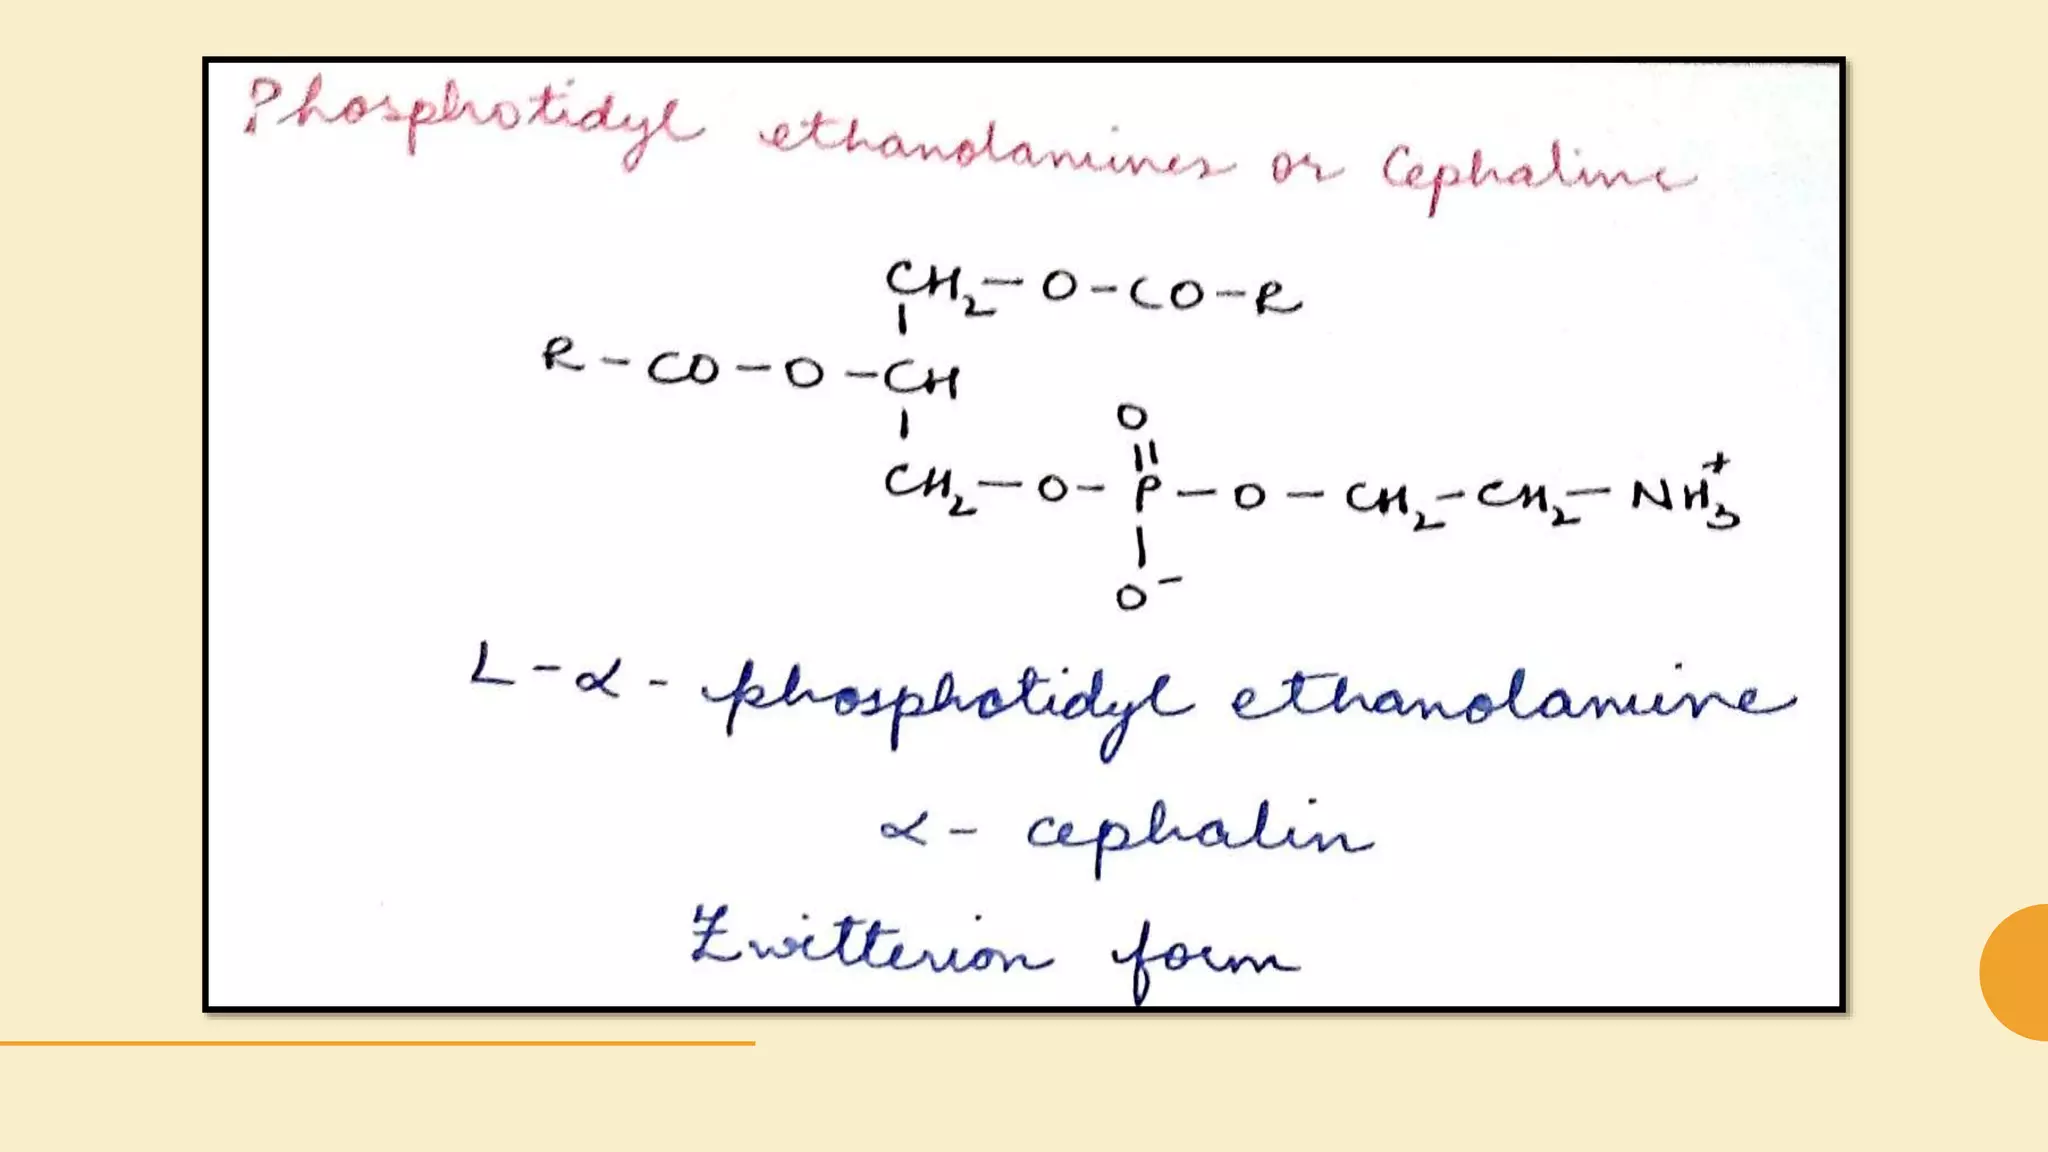 Phosphotidyl ethanolamines or Cephaline
CH₂-O-CO-R
R-CO-O-CH
O
CH₂-O-P-O-CH₂-CH₂-NH₃⁺
O⁻
L-α-phosphotidyl ethanolamine
α-cephalin
Zwitterion form